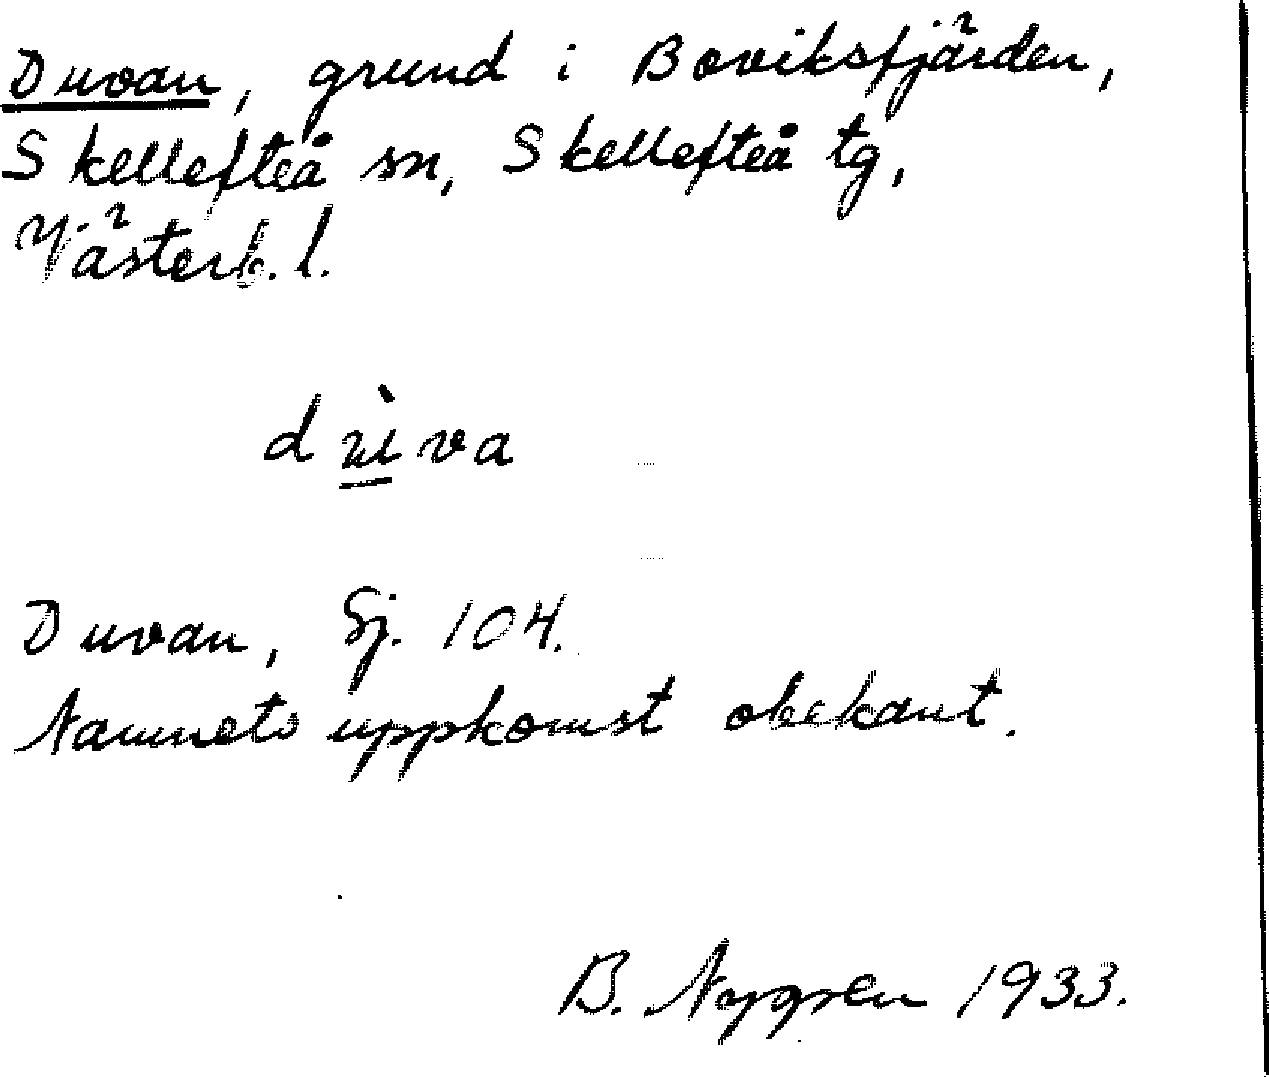 Duvan, grund i Boviksfjärden,
Skellefteå sn, Skellefteå tg,
Västerb. l.
dùva
Duvan, Sj. 104.
Namnets uppkomst obekant.
B. Nygren 1933.